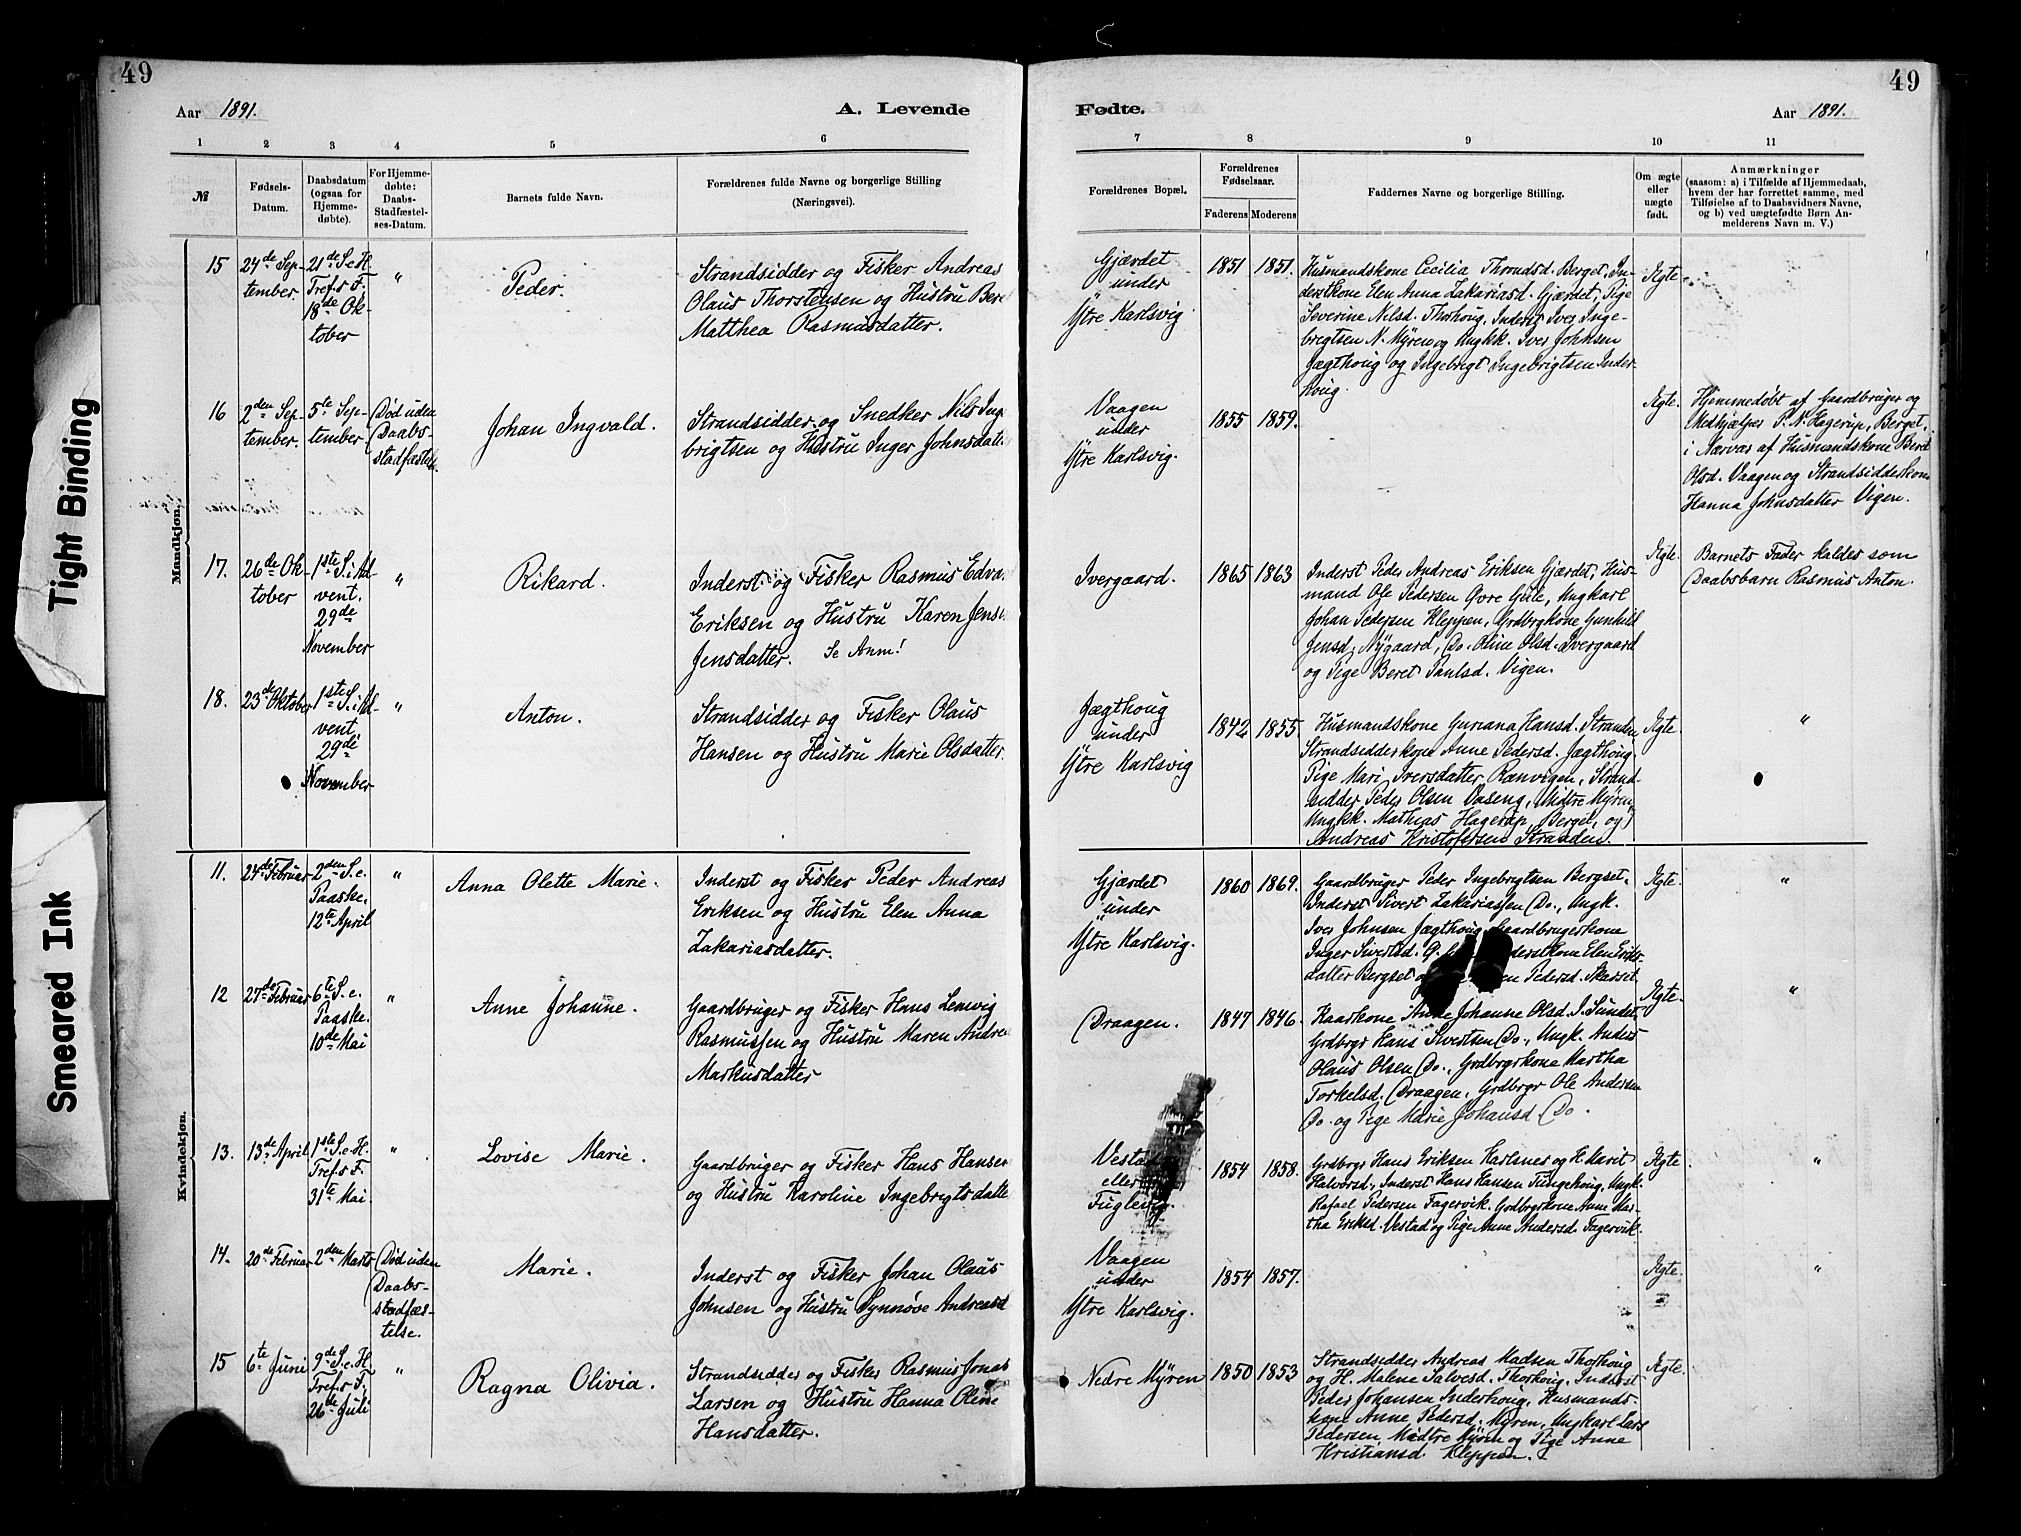 49
49
Aar 1891.
A. Levende
Fødte.
Aar 1891.
1 2 3 4 5 6
7 8 9 10 11
№
Fødsels-
Datum.
Daabsdatum
(ogsaa for
Hjemme-
døbte).
For Hjemme-
døbte:
Daabs-
Stadfæstel-
ses-Datum.
Barnets fulde Navn.
Forældrenes fulde Navne og borgerlige Stilling
(Næringsvei).
Forældrenes Bopæl.
Forældrenes
Fødselsaar.
Faderens Moderens
Faddernes Navne og borgerlige Stilling.
Om ægte
eller
uægte
født.
Anmærkninger
(saasom: a) i Tilfælde af Hjemmedaab,
hvem der har forrettet samme, med
Tilføielse af to Daabsvidners Navne,
og b) ved uægtefødte Børn An-
melderens Navn m. V.)
Mandkjøn.
15
24de Sep-
tember.
21de S. e. H.
Tref.s F.
18de Ok-
tober
"
Peder.
Strandsidder og Fisker Andreas
Olaus Thorstensen og Hustru Beret
Matthea Rasmusdatter.
Gjærdet
under
Ytre Karlsvig.
1851 1851.
Husmandskone Cecilia Thomdsd. Berget, In-
derstkone Elen Anna Zakariasd. Gjærdet, Pige
Severine Nilsd. Thorhoug, Inderst Iver Inge-
brigtsen N. Myren og Ungkk. Iver Johnsen
Jægthoug og Ingebrigt Ingebrigtsen Inder-
houg.
Ægte.
16
2den Sep-
tember.
5te Sep-
tember.
Død uden
Daabs-
stadfæstelse
Johan Ingvald.
Strandsidder og Snedker Nils Inge
brigtsen og Hustru Inger Johnsdatter
Vaagen
under
Ytre Karlsvig.
1855 1859.
Ægte.
Hjemmedøbt af Gaardbruger og
Medhjælper P. N. Hagerup, Berget,
i Nærvær af Husmandskone Beret
Olsd. Vaagen og Strandsidderkone
Hanna Johnsdatter Vigen.
17.
26de Ok-
tober
1ste S. i Ad-
vent.
29de
November
"
Rikard.
Inderst og Fisker Rasmus Edvard
Eriksen og Hustru Karen Jensine
Jensdatter. Se Anm!
Ivergaard.
1865 1863
Inderst Peder Andreas Eriksen Gjærdet, Hus-
mand Ole Pedersen Øvre Gule, Ungkarl
Johan Pedersen Kleppen, Grdbrgkone Gunhild
Jensd. Nygaard, Do. Oline Olsd. Ivergaard
og Pige Beret Paulsd. Vigen.
Ægte.
Barnets Fader kaldes som
Daabsbarn Rasmus Anton.
18.
23de Oktober
1ste S. i Ad-
vent
29de
November
"
Anton.
Strandsidder og Fisker Olaus
Hansen og Hustru Marie Olsdatter.
Jægthoug
under
Ytre Karlsvig
1842 1855.
Husmandskone Guriana Hansd. Stranden,
Strandsidderkone Anne Pedersd. Jægthoug,
Pige Mari Iversdatter Rænvigen, Strand-
sidder Peder Olsen Vaseng, Midtre Myren,
Ungkk. Mathias Hagerup, Berget, og
Andreas Kristofersen Stranden.
Ægte.
"
Kvindekjøn.
11.
24de Februar
2den S. e.
Paaske.
12te April
"
Anna Olette Marie.
Inderst og Fisker Peder Andreas
Eriksen og Hustru Elen Anna
Zakariasdatter.
Gjærdet
under
Ytre Karlsvig.
1860 1869.
Gaardbruger Peder Ingebrigtsen Bergset,
Inderst Sivert Zakariassen Do., Ungk.
Iver Johnsen Jægthoug, Gaardbrugerkone
Inger Sivertsd. Inderstkone Elen Eriks-
datter Bergset og Pedersd. Skarset.
Ægte.
"
12
27de Februar
6te S. e.
Paaske.
10de Mai
"
Anne Johanne.
Gaardbruger og Fisker Hans Lenvig
Rasmussen og Hustru Maren Andrea
Markusdatter
Draagen.
1847 1846.
Kaarkone Anne Johanne Olsd. I. Sundet,
Grdbrgr Hans Sivertsen Do., Ungk. Anders
Olaus Olsen Do., Grdbrgrkone Martha
Torkelsd. Draagen, Grdbrgr Ole Andersen
Do. og Pige Marie Johansd. Do.
Ægte.
"
13.
13de April
1ste S. e. H.
Tref.s F.
31te Mai.
"
Lovise Marie.
Gaardbruger og Fisker Hans Hansen
og Hustru Karoline Ingebrigtsdatter
Vestad
eller
Fuglevig.
1854 1858.
Grdbrgr Hans Eriksen Karlsnes og H. Marit
Halvorsd., Inderst Hans Hansen Tungehoug, Ungk.
Rafael Pedersen Fagervik. Grdbrgrkone Anne Mar-
tha Eriksd. Vestad og Pige Anne Andersd. Fagervik.
Ægte
"
14.
20de Februar
2den Marts
Død uden
Daabs-
stadfæs-
telse.
Marie.
Inderst og Fisker Johan Olaus
Johnsen og Hustru Synnøve Andreasd
Vaagen
under
Ytre Karlsvig.
1854 1857.
Ægte.
"
15
6te Juni
9de S. e. H.
Tref.s F.
26de Juli
"
Ragna Olivia.
Strandsidder og Fisker Rasmus Jonas
Larsen og Hustru Hanna Oline
Hansdatter.
Nedre Myren
1850 1853
Strandsidder Andreas Madsen Thorhoug
og H. Malene Salvesd. Thorhoug, Inderst
Peder Johansen Inderhoug, Husmands-
kone Anne Pedersd. Myren, Ungkarl Lars
Pedersen Midtre Myren og Pige Anne
Kristiansd Kleppen.
Ægte.
Tight Binding
Smeared Ink